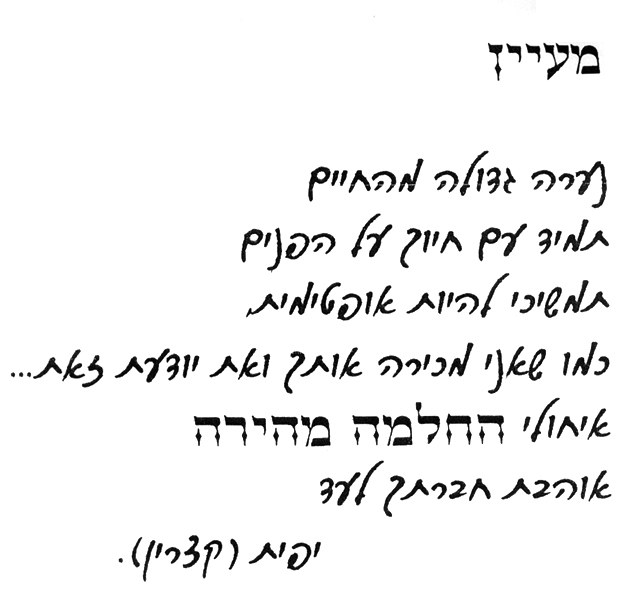 מעיין
נערה גדולה מהחיים
תמיד עם חיוך על הפנים
תמשיכי להיות אופטימית,
כמו שאני מכירה אותך ואת יודעת זאת...
איחולי החלמה מהירה
אוהבת חברתך לעד
יפית (קצרין).